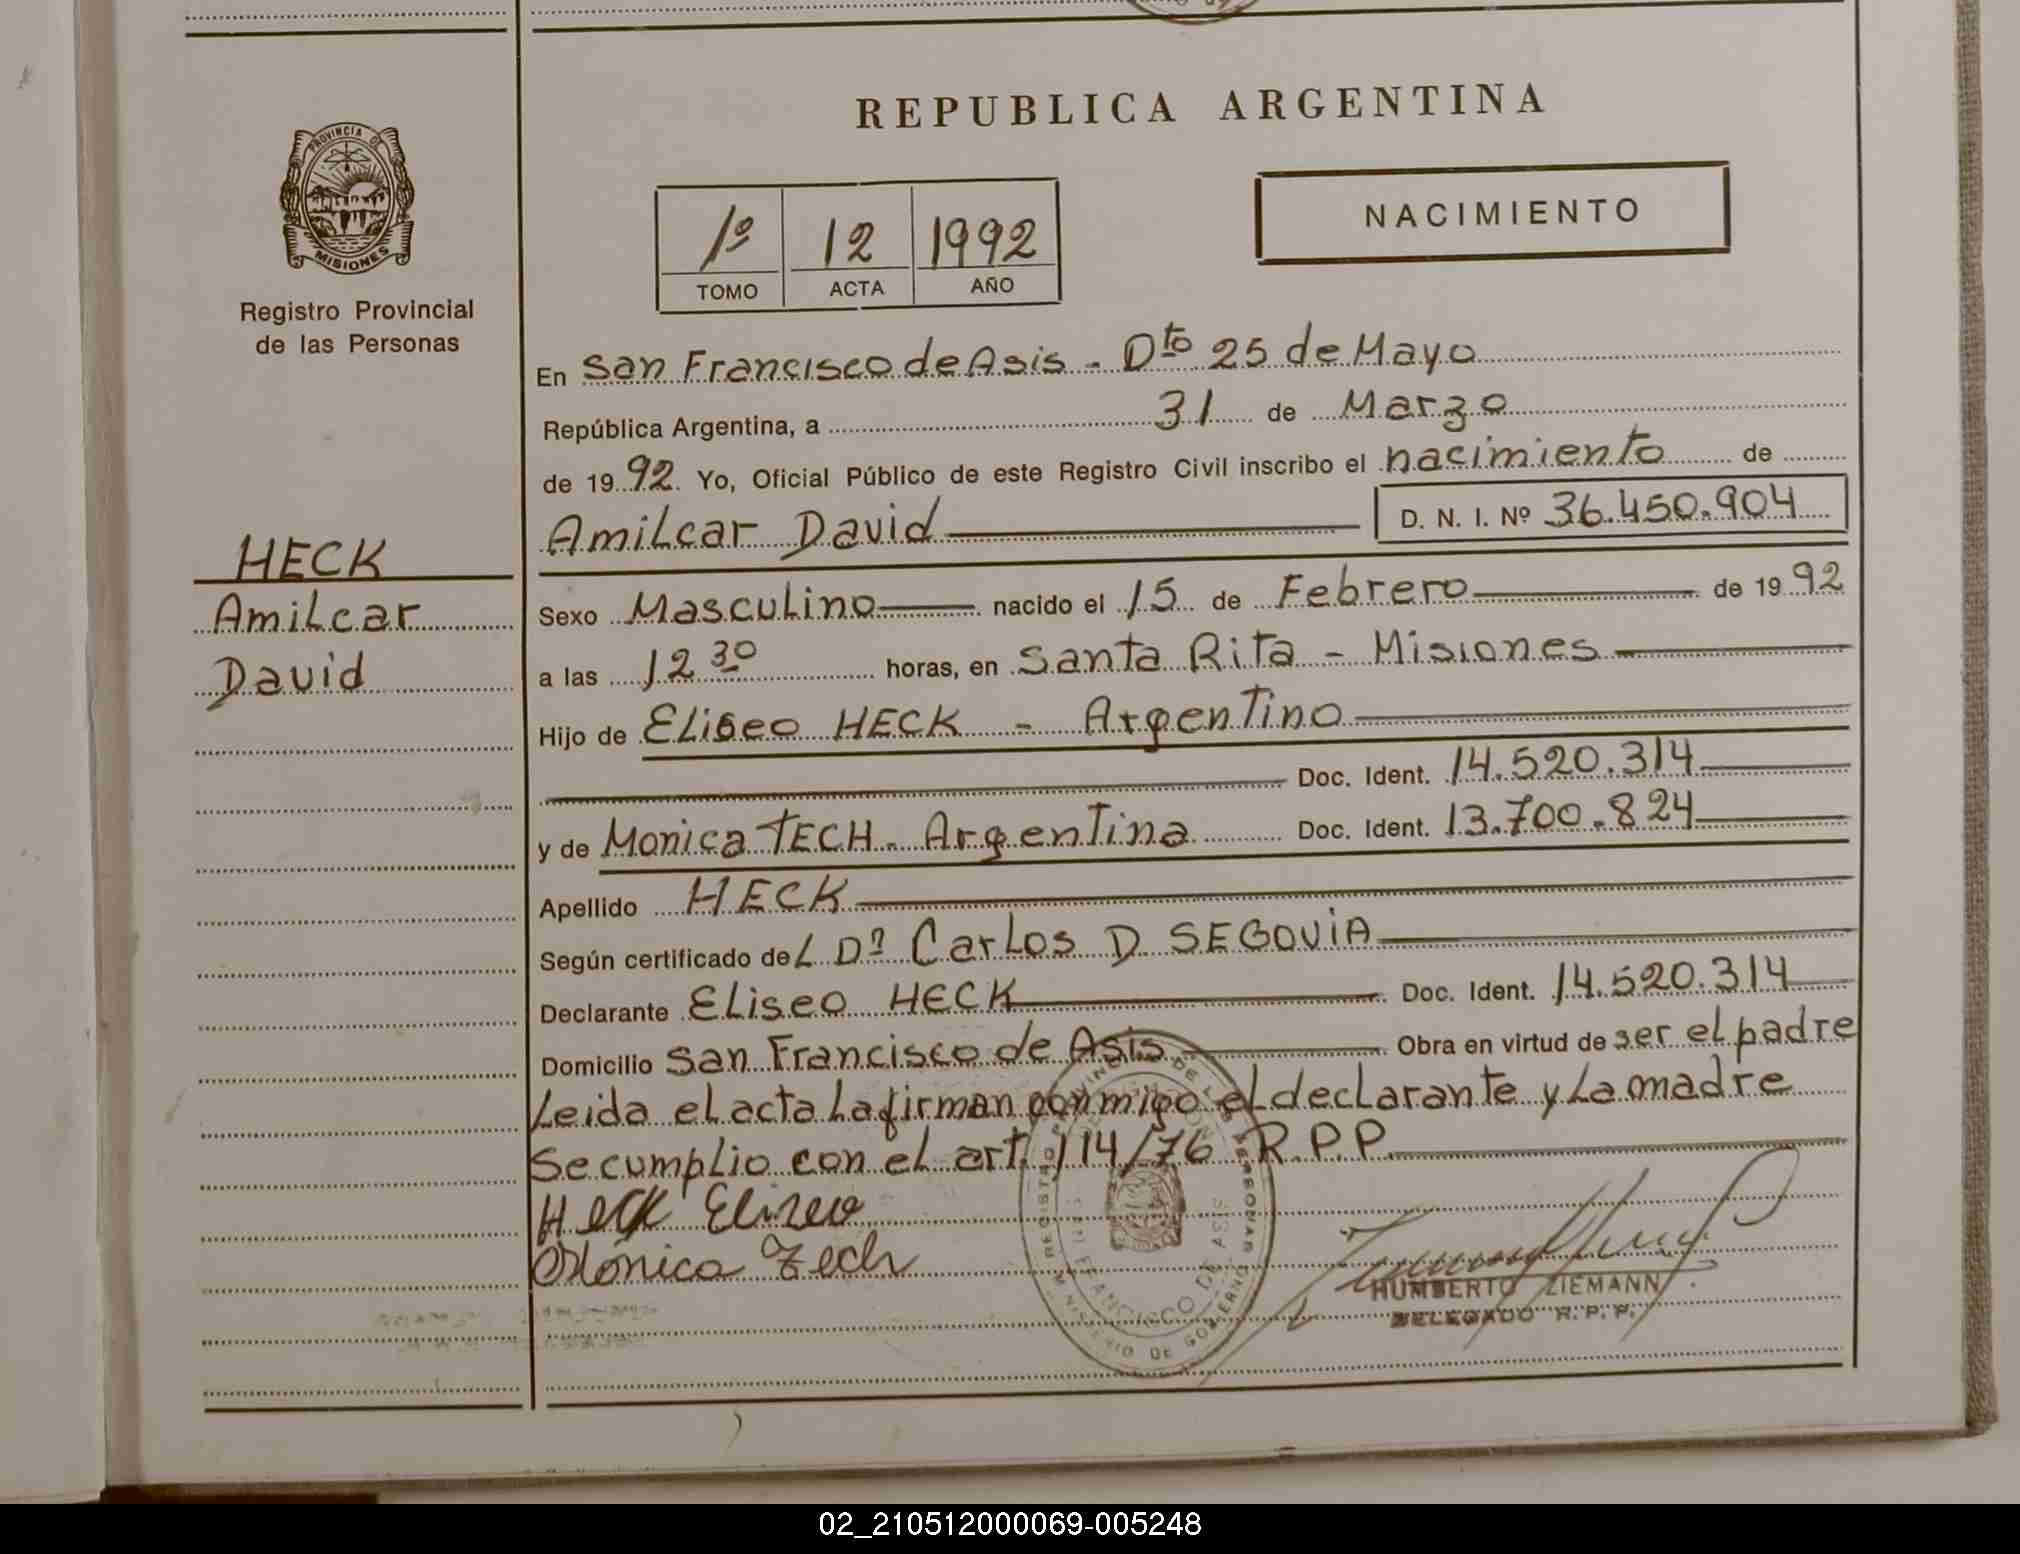 REPUBLICA ARGENTINA
PROVINCIA DE
MISIONES
Registro Provincial
de las Personas
1º 12 1992
TOMO ACTA AÑO
NACIMIENTO
HECK
Amilcar
David
En San Francisco de Asis - Dto 25 de Mayo
República Argentina, a 31 de Marzo
de 19 92. Yo, Oficial Público de este Registro Civil inscribo el nacimiento de
Amilcar David D. N. I. Nº 36.450.904
Sexo Masculino nacido el 15 de Febrero de 19 92
a las 12 30 horas, en Santa Rita - Misiones
Hijo de Eliseo HECK - Argentino
Doc. Ident. 14.520.314
y de Monica TECH - Argentina Doc. Ident. 13.700.824
Apellido HECK
Según certificado del Dr Carlos D SEGOVIA
Declarante Eliseo HECK Doc. Ident. 14.520.314
Domicilio San Francisco de Asis Obra en virtud de ser el padre
Leida el acta la firman conmigo el declarante y La madre
Se cumplio con el art. 114/76 R.P.P.
Heck Eliseo
Mónica Zech
REGISTRO PROVINCIAL DE LAS PERSONAS
SAN FRANCISCO DE ASIS
MINISTERIO DE GOBIERNO
HUMBERTO ZIEMANN
DELEGADO R.P.P.
02_210512000069-005248